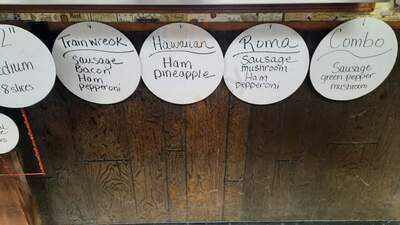 2"
edium
8 slices
Trainwreck
Sausage
Bacon
Ham
pepperoni
Hawaiian
Ham
pineapple
Roma
Sausage
mushroom
Ham
pepperoni
Combo
Sausage
green pepper
mushroom